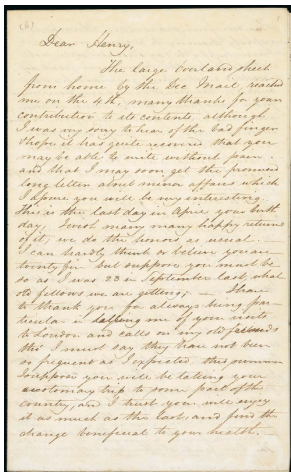 (6)
Dear Henry,
The large Overland sheet
from home by the Dec Mail, reached
me on the 4th, many thanks for your
contribution to its contents, although
I was very sorry to hear of the bad finger
I hope it has quite recovered that you
may be able to write without pain
and that I may soon get the promised
long letter about minor affairs which
I you will be my interesting.
This is the last day in April your birth
day, I wish many many happy returns
of it, we do the honors as usual
I can hardly think or believe you are
twenty but suppose you must be
so as I was 23 in September last, what
old fellows we are getting. I have
to thank you for always being par-
ticular in telling me of your visits
to London and calls on my old friends
this I must say they have not been
so frequent as I expected this summer
I suppose you will be taking your
customary trip to some part of the
country, and I trust you will enjoy
it as much as the last, and find the
change beneficial to your health.